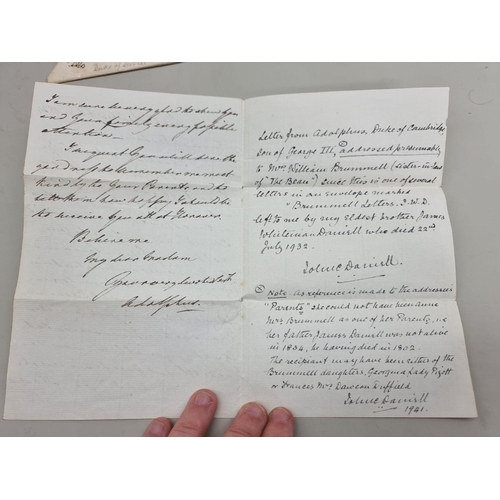 I am sure be very glad to show you
and your family every possible
attention —
I request you will have the
goodness to remember me most
kindly to your Parents and to
tell them how happy I should be
to receive you all at Hanover.
Believe me
my dear Madam
Yours very devotedly
Adolphus.
Letter from Adolphus, Duke of Cambridge,
Son of George III, addressed presumably
to Mrs William Brummell (sister-in-law
of "The Beau") since this is one of several
letters in an envelope marked
"Brummell Letters. J.W.D.
left to me by my Eldest brother James
Daniell who died 22nd
July 1932.
John C Daniell.
Note. As reference is made to the addressee's
"Parents" she could not have been Anne
Mrs Brummell as one of her Parents, i.e
her father James Daniell was not alive
in 1834, he having died in 1802.
The recipient may have been either of the
Brummell daughters, Georgina Lady Pigott
or Frances Mrs Dawson Duffield
John C Daniell
1941.